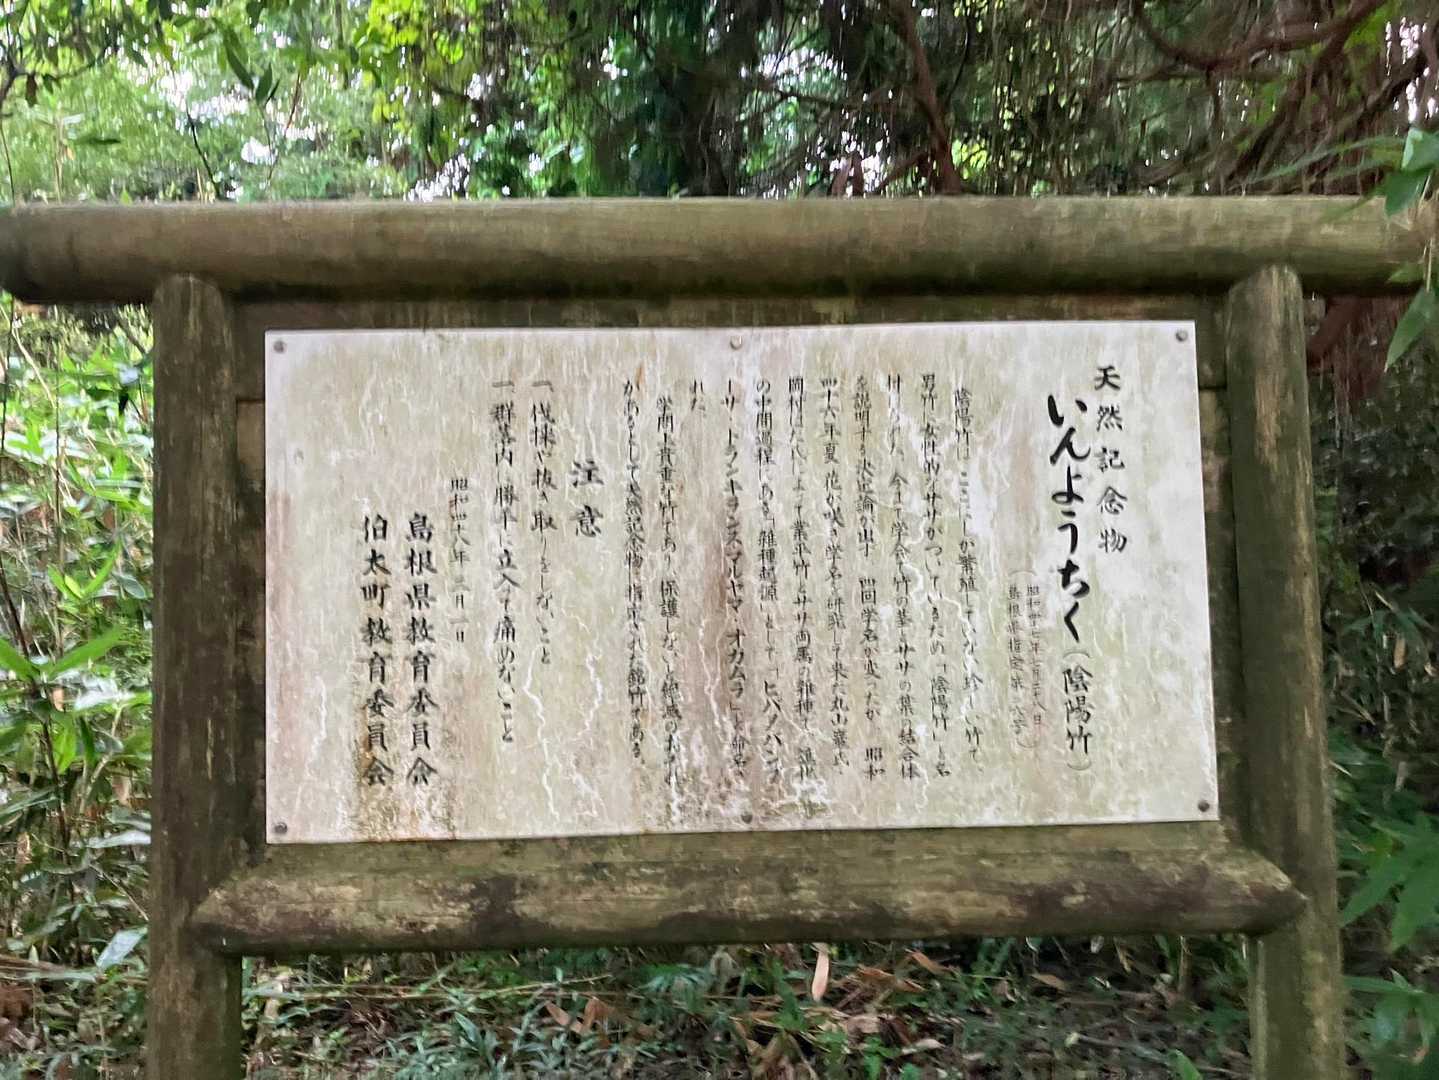 天然記念物
いんようちく(陰陽竹)
(昭和四十七年七月二十八日
島根県指定第 号)
陰陽竹は、ここにしか繁殖していない珍しい竹で、
男竹に女性的なササがついているため「陰陽竹」と名
付けられた。今まで学会で竹の茎とササの葉の結合体
を説明する決定論が出ず、四回学名が変ったが、昭和
四十六年夏、花が咲き学名を研究して来た丸山巌氏、
岡村はた氏によって業平竹とササ両属の雑種で、進化
の中間過程にある「雑種起源」として「ヒバノバンブ
ーサ・トランキランス・マルヤマ・オカムラ」と命名さ
れた。
学問上貴重な竹であり、保護しないと絶滅のおそれ
があるとして天然記念物に指定された銘竹である。
注意
一、伐採や抜き取りをしないこと
一、群落内に勝手に立入って痛めないこと
昭和四八年三月一日
島根県教育委員会
伯太町教育委員会